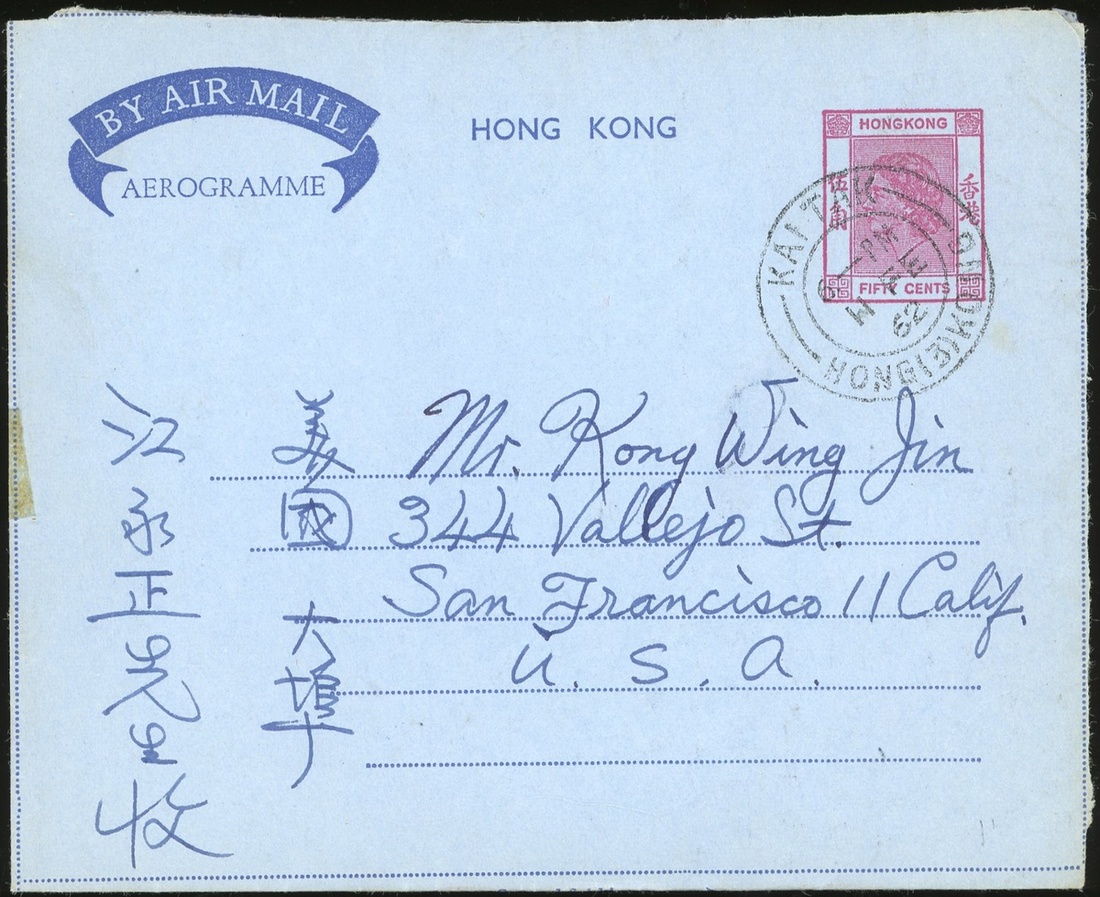 BY AIR MAIL
AEROGRAMME
HONG KONG
HONGKONG
伍角
香港
FIFTY CENTS
KAI TAK
6 — PM
FE
62
HONG (3) KONG
Mr. Kong Wing Jin
344 Vallejo St.
San Francisco 11 Calif.
U. S. A.
美國 大埠
江永正先生收